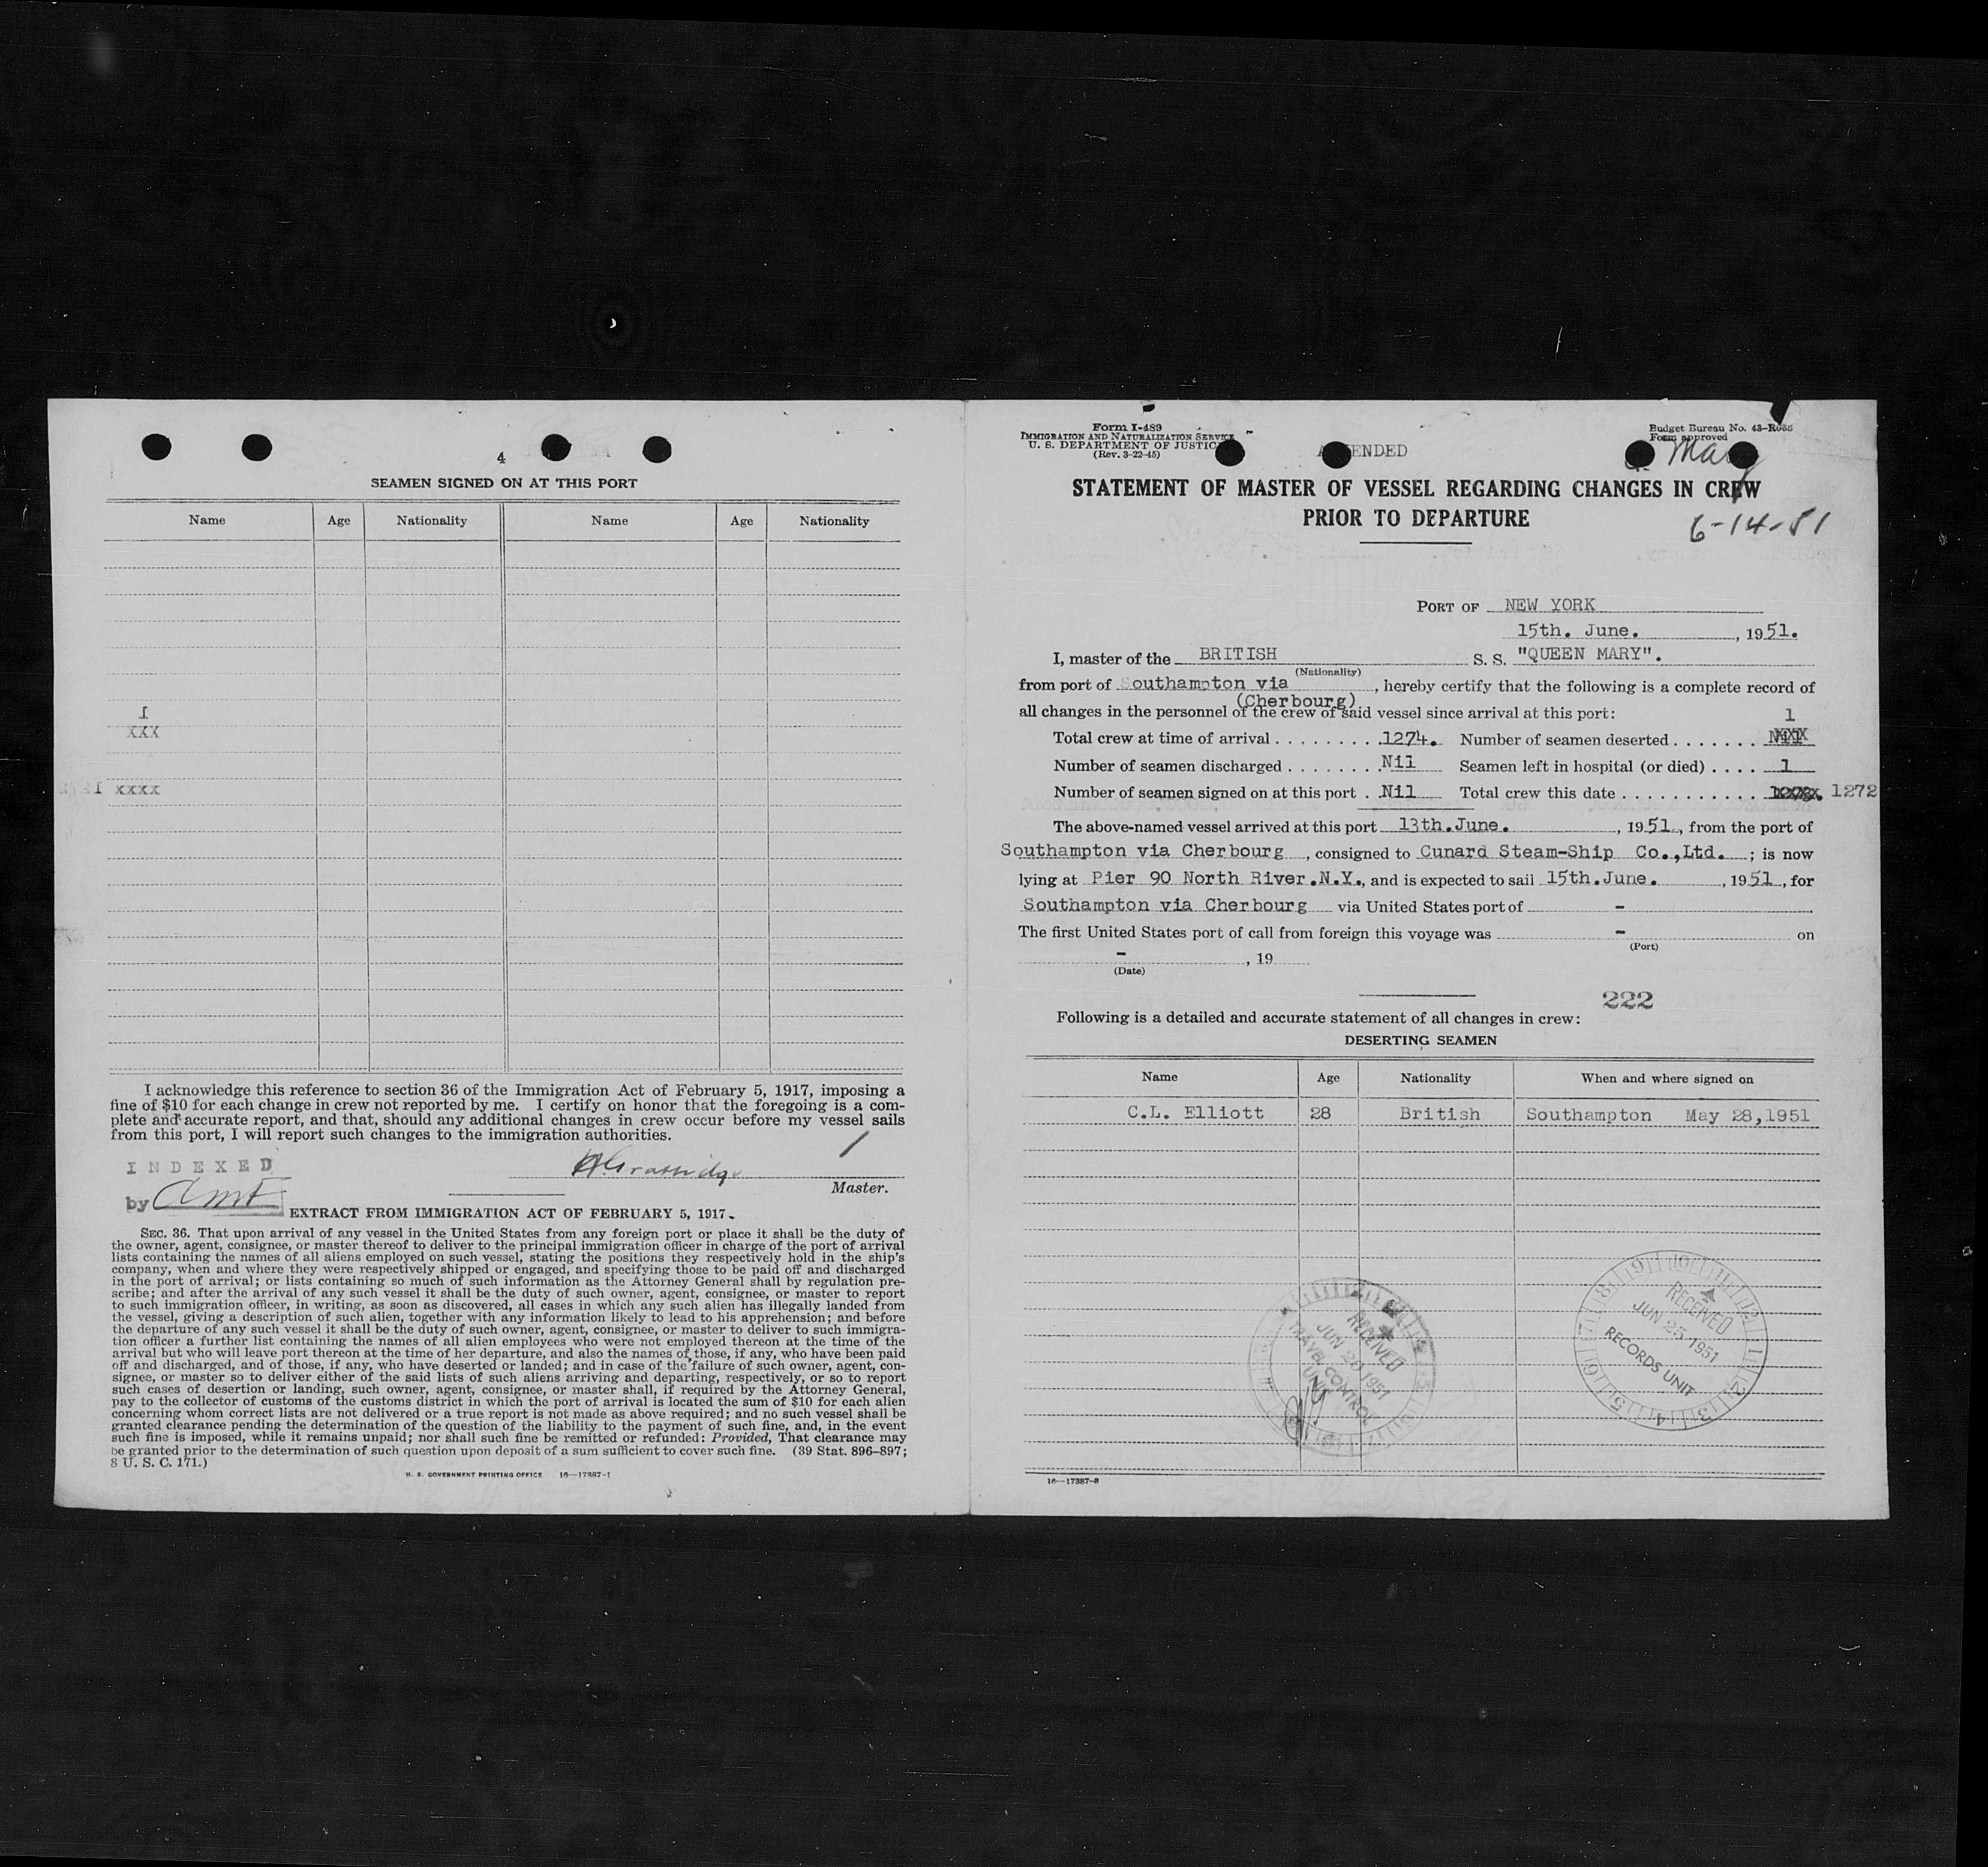 4
SEAMEN SIGNED ON AT THIS PORT
Name Age Nationality Name Age Nationality
1
XXX
1 xxxx
I acknowledge this reference to section 36 of the Immigration Act of February 5, 1917, imposing a
fine of $10 for each change in crew not reported by me. I certify on honor that the foregoing is a com-
plete and accurate report, and that, should any additional changes in crew occur before my vessel sails
from this port, I will report such changes to the immigration authorities.
INDEXED
by
Master.
EXTRACT FROM IMMIGRATION ACT OF FEBRUARY 5, 1917.
SEC. 36. That upon arrival of any vessel in the United States from any foreign port or place it shall be the duty of
the owner, agent, consignee, or master thereof to deliver to the principal immigration officer in charge of the port of arrival
lists containing the names of all aliens employed on such vessel, stating the positions they respectively hold in the ship's
company, when and where they were respectively shipped or engaged, and specifying those to be paid off and discharged
in the port of arrival; or lists containing so much of such information as the Attorney General shall by regulation pre-
scribe; and after the arrival of any such vessel it shall be the duty of such owner, agent, consignee, or master to report
to such immigration officer, in writing, as soon as discovered, all cases in which any such alien has illegally landed from
the vessel, giving a description of such alien, together with any information likely to lead to his apprehension; and before
the departure of any such vessel it shall be the duty of such owner, agent, consignee, or master to deliver to such immigra-
tion officer a further list containing the names of all alien employees who were not employed thereon at the time of the
arrival but who will leave port thereon at the time of her departure, and also the names of those, if any, who have been paid
off and discharged, and of those, if any, who have deserted or landed; and in case of the failure of such owner, agent, con-
signee, or master so to deliver either of the said lists of such aliens arriving and departing, respectively, or so to report
such cases of desertion or landing, such owner, agent, consignee, or master shall, if required by the Attorney General,
pay to the collector of customs of the customs district in which the port of arrival is located the sum of $10 for each alien
concerning whom correct lists are not delivered or a true report is not made as above required; and no such vessel shall be
granted clearance pending the determination of the question of the liability to the payment of such fine, and, in the event
such fine is imposed, while it remains unpaid; nor shall such fine be remitted or refunded: Provided, That clearance may
be granted prior to the determination of such question upon deposit of a sum sufficient to cover such fine. (39 Stat. 896-897;
8 U. S. C. 171.)
U. S. GOVERNMENT PRINTING OFFICE 16—17387-1
Form I-489
IMMIGRATION AND NATURALIZATION SERVICE
U. S. DEPARTMENT OF JUSTICE
(Rev. 3-22-45)
AMENDED
Budget Bureau No. 43-R085
Form approved
Mary
STATEMENT OF MASTER OF VESSEL REGARDING CHANGES IN CREW
PRIOR TO DEPARTURE
6-14-51
PORT OF NEW YORK
15th. June. , 1951.
I, master of the BRITISH S. S. "QUEEN MARY".
(Nationality)
from port of Southampton via , hereby certify that the following is a complete record of
(Cherbourg)
all changes in the personnel of the crew of said vessel since arrival at this port: 1
Total crew at time of arrival . . . . . . . . . 1274. Number of seamen deserted . . . . . . . Nil
Number of seamen discharged . . . . . . . . Nil Seamen left in hospital (or died) . . . . 1
Number of seamen signed on at this port . . Nil Total crew this date . . . . . . . . . . . . 1272
The above-named vessel arrived at this port 13th.June. , 1951, from the port of
Southampton via Cherbourg , consigned to Cunard Steam-Ship Co.,Ltd. ; is now
lying at Pier 90 North River.N.Y., and is expected to sail 15th.June. , 1951, for
Southampton via Cherbourg via United States port of -
The first United States port of call from foreign this voyage was - on
(Port)
- , 19
(Date)
222
Following is a detailed and accurate statement of all changes in crew:
DESERTING SEAMEN
Name Age Nationality When and where signed on
C.L. Elliott 28 British Southampton May 28,1951
RECEIVED
JUN 20 1951
TRAVEL CONTROL
UNIT
RECEIVED
JUN 25 1951
RECORDS UNIT
16—17387-2